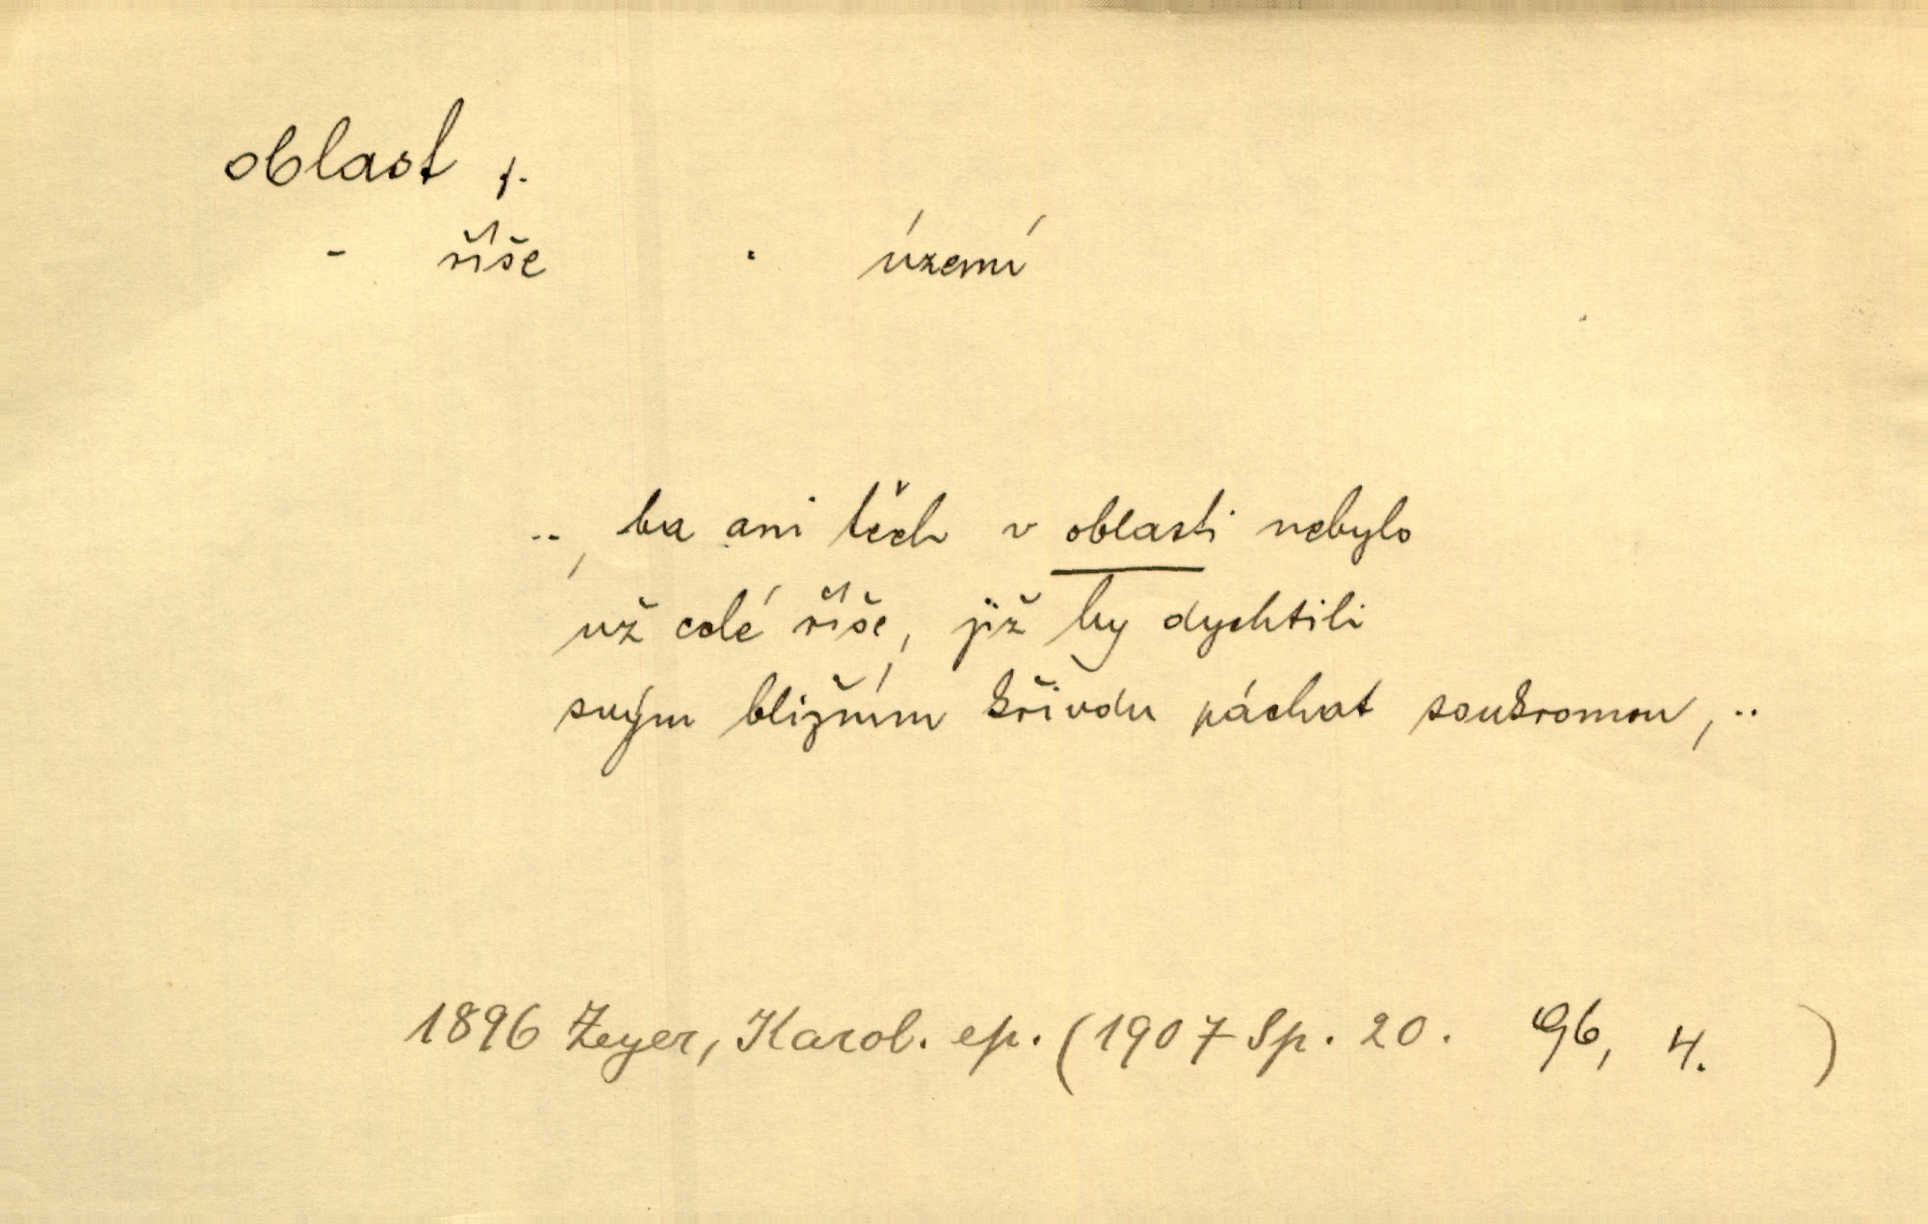 oblast f.
- říše · území
.., ba ani těch v oblasti nebylo
už celé říše, již by dychtili
svým bližním křivdu páchat soukromou, ..
1896 Zeyer, Karol. ep. (1907 Sp. 20. 96, 4. )